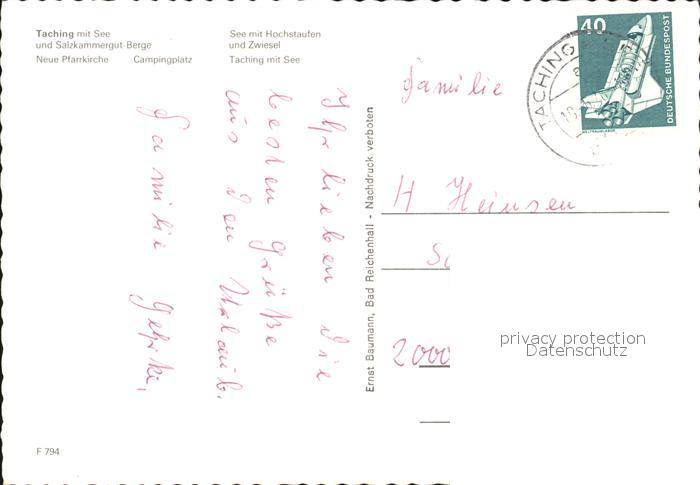 Taching mit See
und Salzkammergut-Berge
Neue Pfarrkirche Campingplatz
See mit Hochstaufen
und Zwiesel
Taching mit See
40
DEUTSCHE BUNDESPOST
WELTRAUMLABOR
TACHING
Ihr lieben die
besten Grüße
aus den Urlaub.
Familie
Ernst Baumann, Bad Reichenhall - Nachdruck verboten
Familie
H Heinsen
2000
privacy protection
Datenschutz
F 794